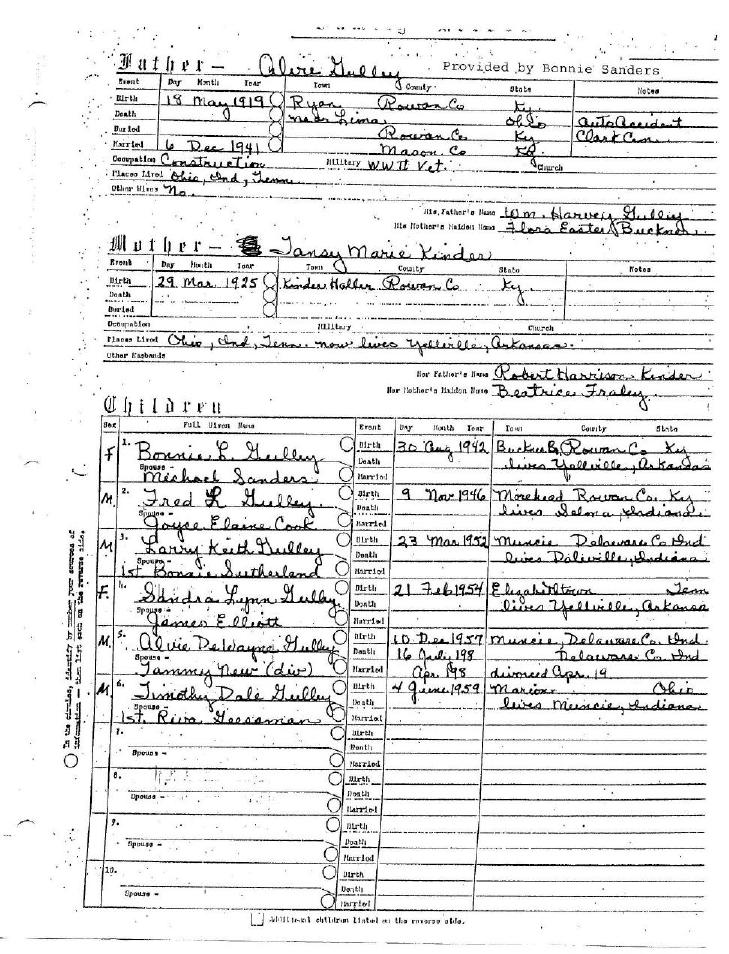 Father — Alvie Gulley Provided by Bonnie Sanders
Event Day Month Year Town County State Notes
Birth 18 May 1919 Ryan Rowan Co Ky.
Death near Lima, Ohio auto accident
Buried Rowan Co Ky Clark Cem.
Married 6 Dec 1941 Mason Co Ky
Occupation Construction Military WW II Vet. Church
Places Lived Ohio, Ind, Tenn
Other Wives No.
His Father's Name Wm. Harvey Gulley
His Mother's Maiden Name Flora Easter Buckner
Mother — Tansy Marie Kinder
Event Day Month Year Town County State Notes
Birth 29 Mar 1925 Kinder Holler Rowan Co Ky.
Death
Buried
Occupation Military Church
Places Lived Ohio, Ind, Tenn. now lives Yellville, Arkansas.
Other Husbands
Her Father's Name Robert Harrison Kinder
Her Mother's Maiden Name Beatrice Fraley
Children
Sex Full Given Name Event Day Month Year Town County State
F 1. Bonnie L. Gulley Birth 30 Aug 1942 Rowan Co Ky
Spouse – Michael Sanders Death lives Yellville, Arkansas
Married
M. 2. Fred L Gulley Birth 9 Nov 1946 Morehead Rowan Co. Ky
Spouse – Joyce Elaine Cook Death lives Selma, Indiana
Married
M 3. Larry Keith Gulley Birth 23 Mar 1952 Muncie Delaware Co Ind
Spouse – 1st Bonnie Sutherland Death lives Daleville, Indiana
Married
F. 4. Sandra Lynn Gulley Birth 21 Feb 1954 Elizabethtown Tenn
Spouse – James Elliott Death lives Yellville, Arkansas
Married
M. 5. Alvie DeWayne Gulley Birth 10 Dec 1957 Muncie, Delaware Co. Ind.
Spouse – Tammy New (div) Death 16 July 198 Delaware Co. Ind
Married Apr. 198 divorced Apr. 19
M 6. Timothy Dale Gulley Birth 4 June 1959 Marion Ohio
Spouse – 1st. Riva Death lives Muncie, Indiana
Married
7. Birth
Spouse – Death
Married
8. Birth
Spouse – Death
Married
9. Birth
Spouse – Death
Married
10. Birth
Spouse – Death
Married
Additional children listed on the reverse side.
In the circles, identify by number your sources of
information — then list each on the reverse side.